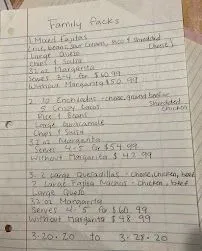 Family Packs
1 Mixed Fajitas
(rice, beans, sour cream, pico & shredded
cheese)
Large Queso
Chips & Salsa
32 oz Margarita
Serves 3-4 for $60.99
Without Margarita $50.99
2. 10 Enchiladas - cheese, ground beef or
Shredded
chicken
5 Crispy Tacos
Rice & Beans
Large Guacamole
Chips & Salsa
32 oz Margarita
Serves 4-5 for $54.99
Without Margarita $42.99
3. 2 Large Quesadillas - cheese, chicken, beef
2 Large Fajita Nachos - chicken, beef
Large Queso
32 oz Margarita
Serves 4-5 for $60.99
Without Margarita $48.99
3-20-20 to 3-28-20